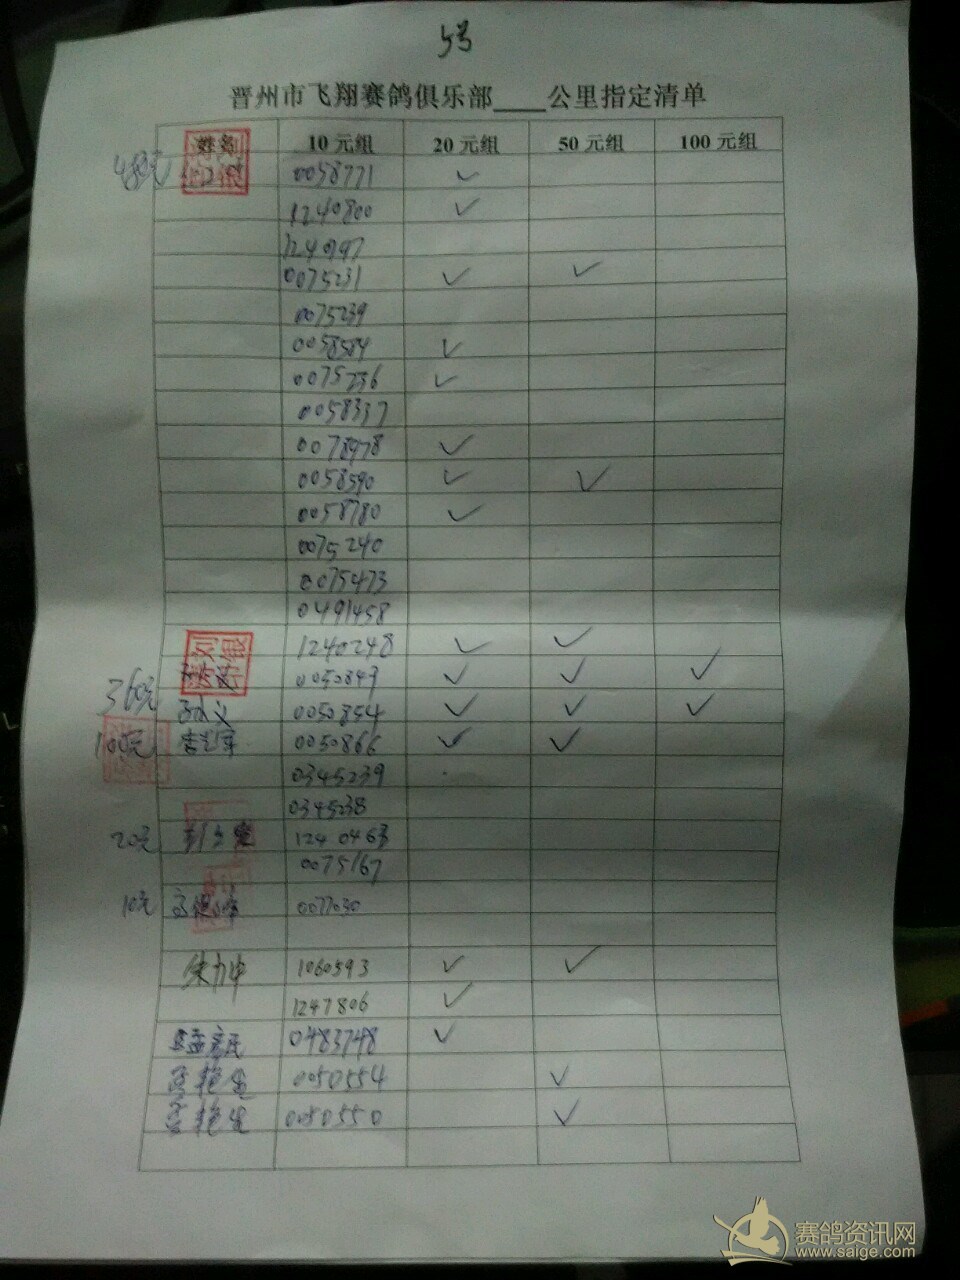 5号
晋州市飞翔赛鸽俱乐部____公里指定清单
姓名 10元组 20元组 50元组 100元组
480元 0058771 ✓
1240800 ✓
1240797
0075231 ✓ ✓
0075239
0058584 ✓
0075236 ✓
0058337
0078978 ✓
0058590 ✓ ✓
0058780 ✓
0075240
0075473
0491458
1240248 ✓ ✓
360元 0050843 ✓ ✓ ✓
0050854 ✓ ✓ ✓
100元 0050866 ✓ ✓
0345239
0345238
20元 1240463
0075167
10元 0077030
1060593 ✓ ✓
1247806 ✓
0483748 ✓
0050554 ✓
0050550 ✓
赛鸽资讯网
www.saige.com